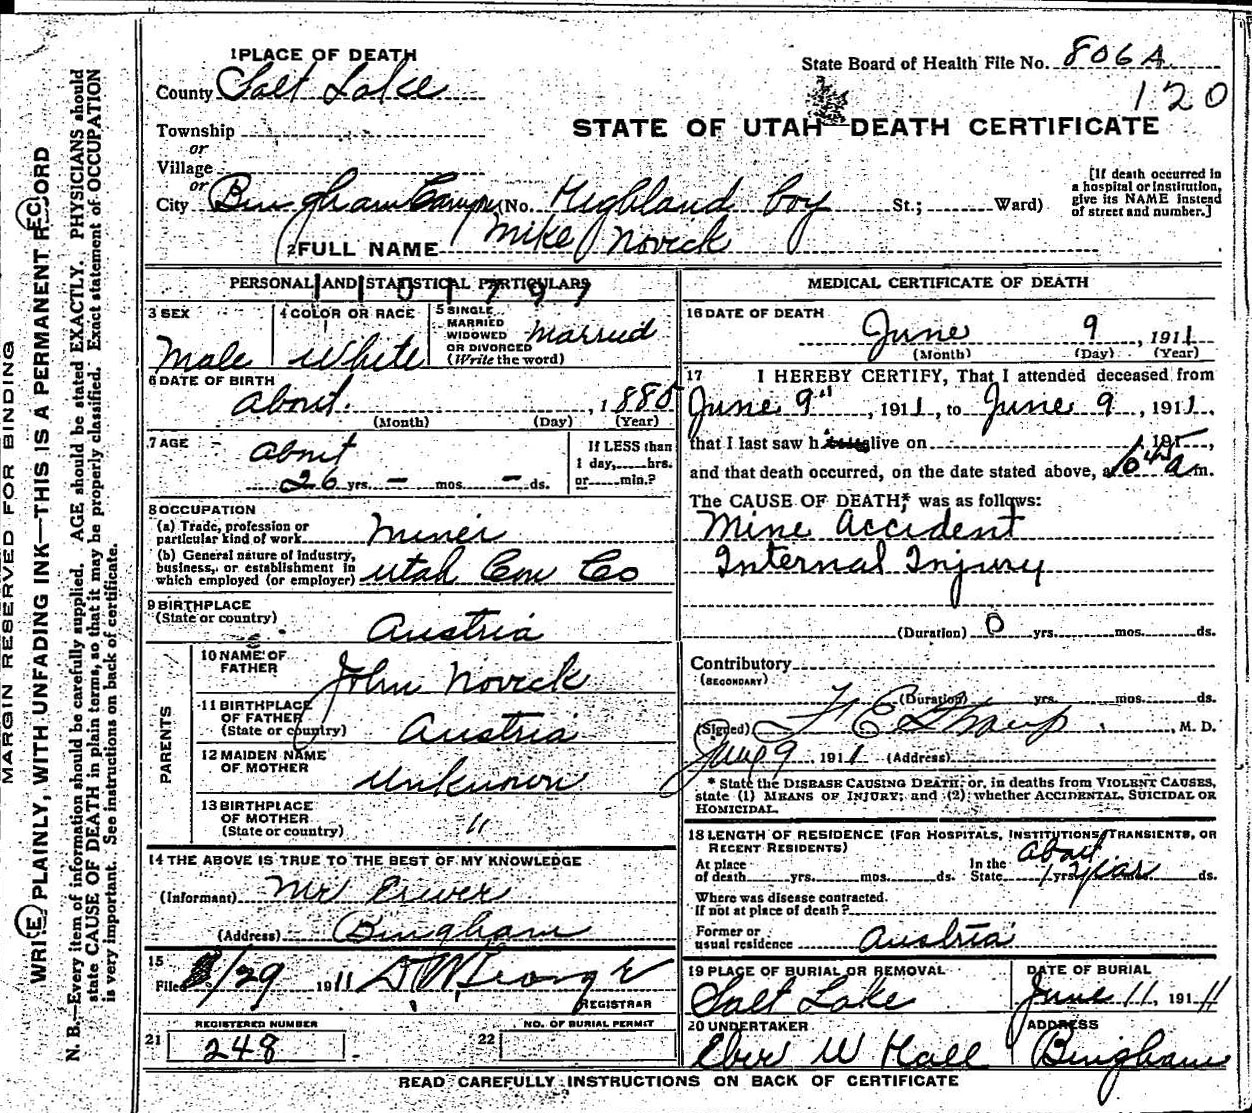 MARGIN RESERVED FOR BINDING
WRITE PLAINLY, WITH UNFADING INK—THIS IS A PERMANENT RECORD
N. B.—Every item of information should be carefully supplied. AGE should be stated EXACTLY. PHYSICIANS should
state CAUSE OF DEATH in plain terms, so that it may be properly classified. Exact statement of OCCUPATION
is very important. See instructions on back of certificate.
1 PLACE OF DEATH
State Board of Health File No. 806A
County Salt Lake
120
Township
STATE OF UTAH—DEATH CERTIFICATE
or
Village
or
City Bingham Canyon No. Highland Boy St.; Ward)
[If death occurred in
a hospital or institution,
give its NAME instead
of street and number.]
2 FULL NAME Mike Novick
PERSONAL AND STATISTICAL PARTICULARS
3 SEX
Male
4 COLOR OR RACE
White
5 SINGLE
MARRIED
WIDOWED
OR DIVORCED
(Write the word)
Married
6 DATE OF BIRTH
About , 1885
(Month) (Day) (Year)
7 AGE
About
26 yrs. – mos. – ds.
If LESS than
1 day, hrs.
or min.?
8 OCCUPATION
(a) Trade, profession or
particular kind of work Miner
(b) General nature of industry,
business, or establishment in
which employed (or employer) Utah Con Co
9 BIRTHPLACE
(State or country) Austria
PARENTS
10 NAME OF
FATHER John Novick
11 BIRTHPLACE
OF FATHER
(State or country) Austria
12 MAIDEN NAME
OF MOTHER Unknown
13 BIRTHPLACE
OF MOTHER
(State or country) "
14 THE ABOVE IS TRUE TO THE BEST OF MY KNOWLEDGE
(Informant) Mr
(Address) Bingham
15
Filed 8/29 1911
REGISTRAR
REGISTERED NUMBER
21 248
NO. OF BURIAL PERMIT
22
MEDICAL CERTIFICATE OF DEATH
16 DATE OF DEATH
June 9, 1911
(Month) (Day) (Year)
17 I HEREBY CERTIFY, That I attended deceased from
June 9th, 1911, to June 9, 1911,
that I last saw h alive on , 191
and that death occurred, on the date stated above, a m.
The CAUSE OF DEATH,* was as follows:
Mine Accident
Internal Injury
(Duration) 0 yrs. mos. ds.
Contributory
(SECONDARY)
(Duration) yrs. mos. ds.
(Signed) , M. D.
9 1911 (Address)
* State the DISEASE CAUSING DEATH, or, in deaths from VIOLENT CAUSES,
state (1) MEANS OF INJURY; and (2) whether ACCIDENTAL, SUICIDAL OR
HOMICIDAL.
18 LENGTH OF RESIDENCE (FOR HOSPITALS, INSTITUTIONS, TRANSIENTS, OR
RECENT RESIDENTS)
At place
of death yrs. mos. ds.
In the
State About 1 year yrs. mos. ds.
Where was disease contracted.
If not at place of death?
Former or
usual residence Austria
19 PLACE OF BURIAL OR REMOVAL
Salt Lake
DATE OF BURIAL
June 11, 1911
20 UNDERTAKER
Eber W Hall
ADDRESS
Bingham
READ CAREFULLY INSTRUCTIONS ON BACK OF CERTIFICATE